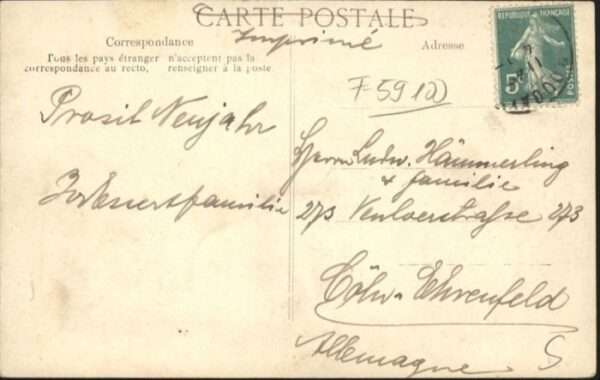 CARTE POSTALE
Imprimé
Correspondance
Tous les pays étranger n'acceptent pas la
correspondance au recto, renseigner à la poste.
Adresse
REPUBLIQUE FRANÇAISE
5
F 59 10
Prosit Neujahr
familie
Herrn Ludw. Hämmerling
& familie
273 Venloerstrasse 273
Cöln-Ehrenfeld
Allemagne